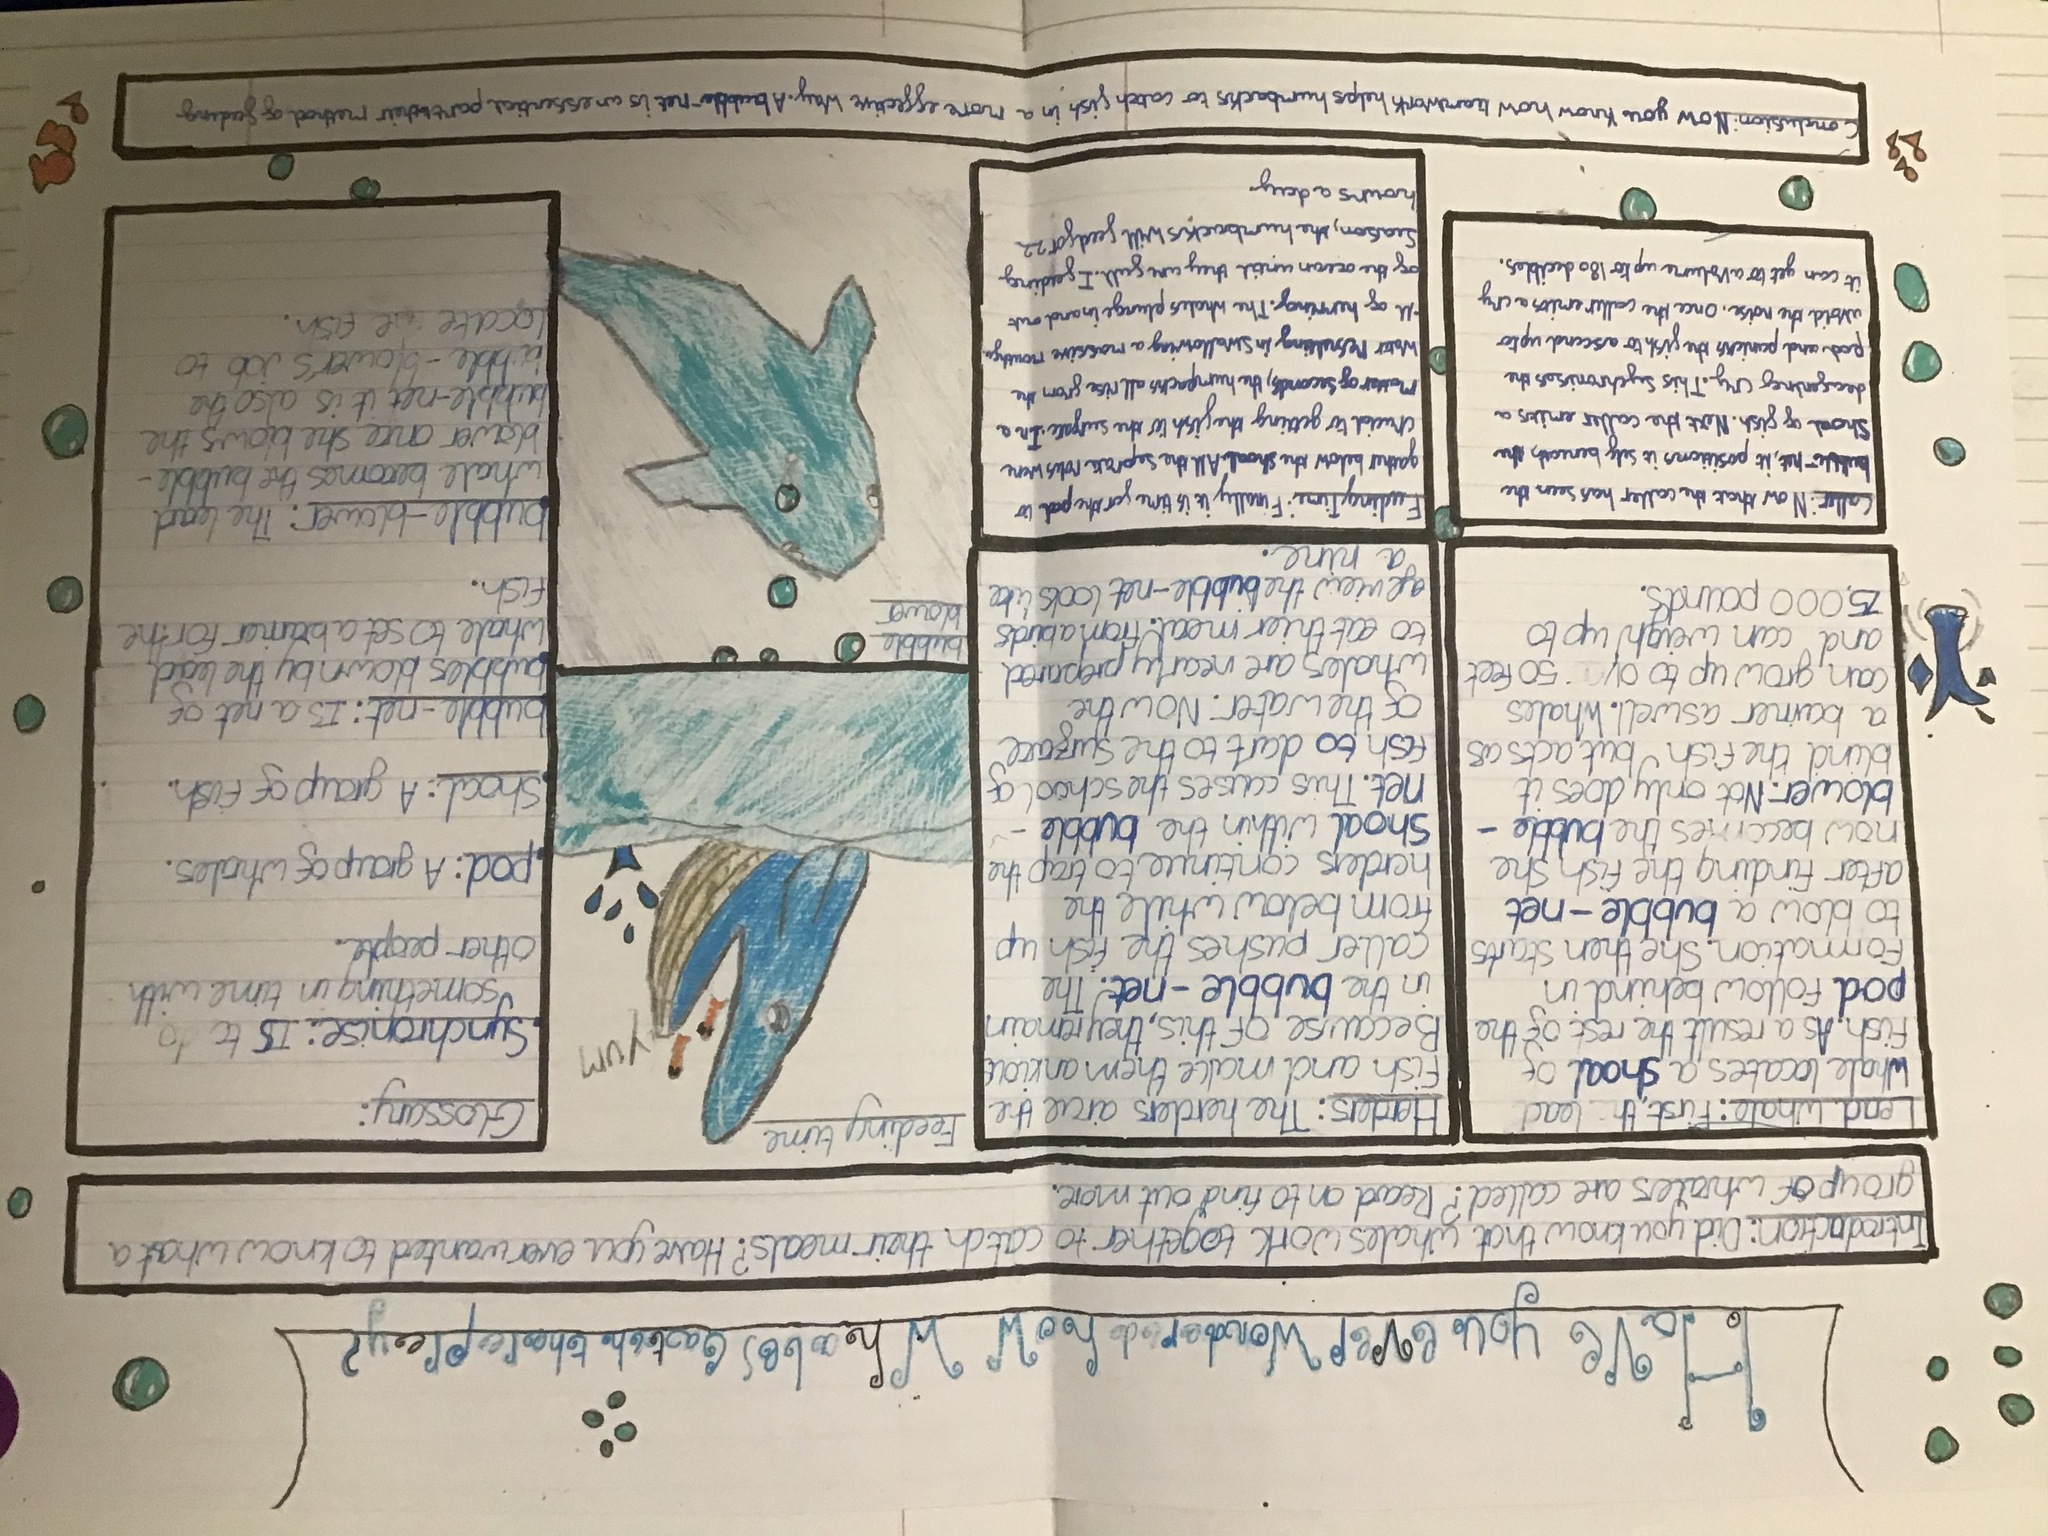 Have you ever wondered how whales catch there prey?
Introduction: Did you know that whales work together to catch their meals? Have you ever wanted to know what a
group of whales are called? Read on to find out more.
Lead whale: First, the lead
whale locates a shoal of
fish. As a result the rest of the
pod follow behind in
formation. She then starts
to blow a bubble-net
after finding the fish she
now becomes the bubble-
blower. Not only does it
blind the fish but acts as
a barrier aswell. Whales
can grow up to 50 feet
and can weigh up to
75,000 pounds.
Herders: The herders circle the
fish and make them anxious
Because of this, they remain
in the bubble-net. The
caller pushes the fish up
from below while the
herders continue to trap the
shoal within the bubble-
net. This causes the school of
fish to dart to the surface
of the water. Now the
whales are nearly prepared
to eat thier meal. From a birds
eye view the bubble-net looks like
a nine.
Caller: Now that the caller has seen the
bubble-net, it positions it self beneath the
shoal of fish. Next the caller emites a
deafening cry. This sychronises the
pod and panicks the fish to ascend up to
avoid the noise. Once the caller emits a cry
it can get to a volume up to 180 decibles.
Feeding Time: Finally it is time for the pod to
gather below the shoal. All the seprate roles were
crucial to getting the fish to the surface. In a
matter of seconds, the humpbacks all rise from the
water resulting in swallowing a massive mouthfu
ll of herring. The whales plunge in and out
of the ocean until they are full. I feeding
season, the humbacks will feed for 22
hours a day.
Feeding time
YUM
bubble
blower
Glossary:
Synchronise: Is to do
something in time with
other people.
pod: A group of whales.
Shoal: A group of fish.
bubble-net: Is a net of
bubbles blown by the lead
whale to set a barrier for the
fish.
bubble-blower: The lead
whale becomes the bubble-
blower once she blows the
bubble-net it is also the
bubble-blower's job to
locate the fish.
Conclusion: Now you know how teamwork helps humbacks to catch fish in a more effective way. A bubble-net is an essential part their method of feeding.